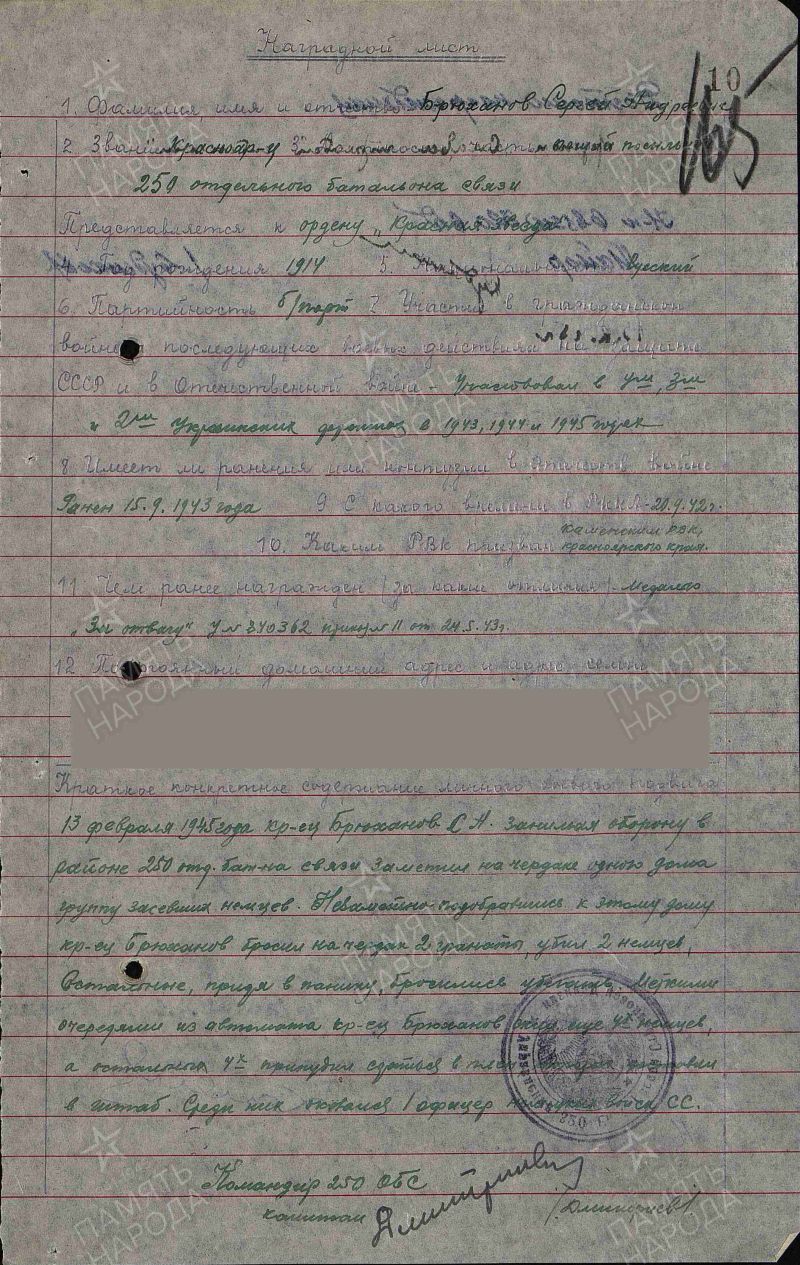 Наградной лист
10
1. Фамилия, имя и отчество Брюханов Сергей Андреевич
2. Звание Красноар-ц 3.
250 отдельного батальона связи
Представляется к ордену „Красная звезда"
4. Год рождения 1914 5. Национальность Русский
6. Партийность б/парт 7. Участие в гражданской
войне, последующих боевых действиях по защите
СССР и в Отечественной войне - Участвовал в 4м, 3м
и 2м Украинских фронтах в 1943, 1944 и 1945 годах
8. Имеет ли ранения или контузии в отечеств. войне
Ранен 15.9.1943 года 9 С какого времени в РККА - 20.9.42 г.
10. Каким РВК призван Каменским РВК,
красноярского края.
11. Чем ранее награжден (за какие отличия) - Медалью
„За отвагу" У № приказ № 11 от 24.5.43 г.
12 Постоянный домашний адрес и адрес семьи
Краткое конкретное содержание личного боевого подвига
13 февраля 1945 года кр-ец Брюханов С. А. занимая оборону в
районе 250 отд. бат-на связи заметил на чердаке одного дома
группу засевших немцев. Незаметно подобравшись к этому дому
кр-ец Брюханов бросил на чердак 2 гранаты, убил 2 немцев,
Остальные, придя в панику, бросились убегать. Меткими
очередями из автомата кр-ец Брюханов убил еще 4х немцев,
а остальных 4х принудил сдаться в плен,
в штаб. Среди них оказался 1 офицер войск СС.
Командир 250 ОБС
капитан /Дмитриев/
ПАМЯТЬ
НАРОДА